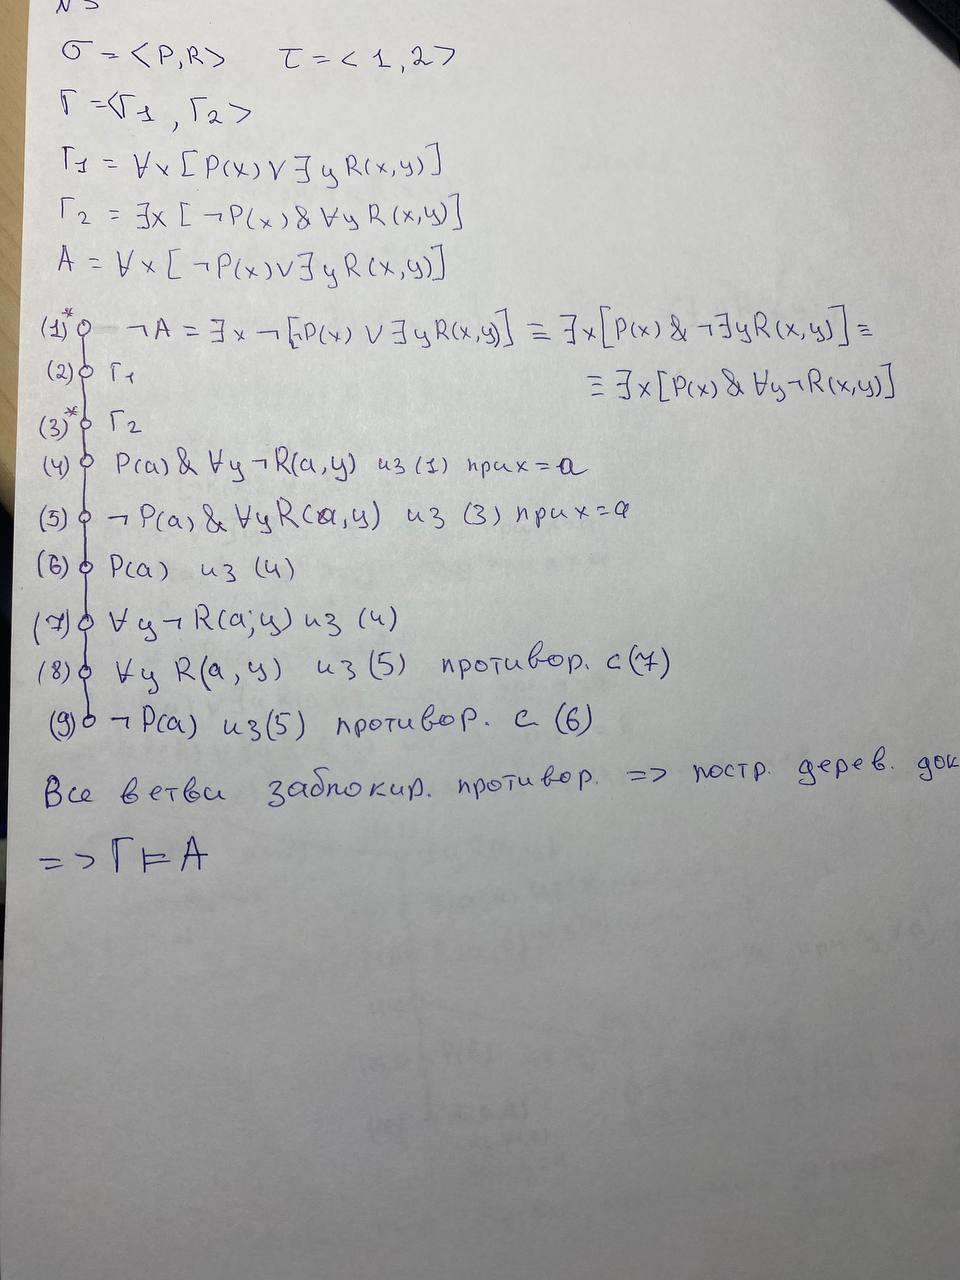 σ = <P,R> τ = <1,2>
Γ = <Γ1, Γ2>
Γ1 = ∀x [P(x) ∨ ∃y R(x,y)]
Γ2 = ∃x [¬P(x) & ∀y R(x,y)]
A = ∀x [¬P(x) ∨ ∃y R(x,y)]
(1)* ¬A = ∃x ¬[¬P(x) ∨ ∃y R(x,y)] ≡ ∃x [P(x) & ¬∃y R(x,y)] ≡
≡ ∃x [P(x) & ∀y ¬R(x,y)]
(2) Γ1
(3)* Γ2
(4) P(a) & ∀y ¬R(a,y) из (1) при x=a
(5) ¬P(a) & ∀y R(a,y) из (3) при x=a
(6) P(a) из (4)
(7) ∀y ¬R(a,y) из (4)
(8) ∀y R(a,y) из (5) противор. с (7)
(9) ¬P(a) из (5) противор. с (6)
Все ветви заблокир. противор. => постр. дерев. док
=> Γ ⊨ A